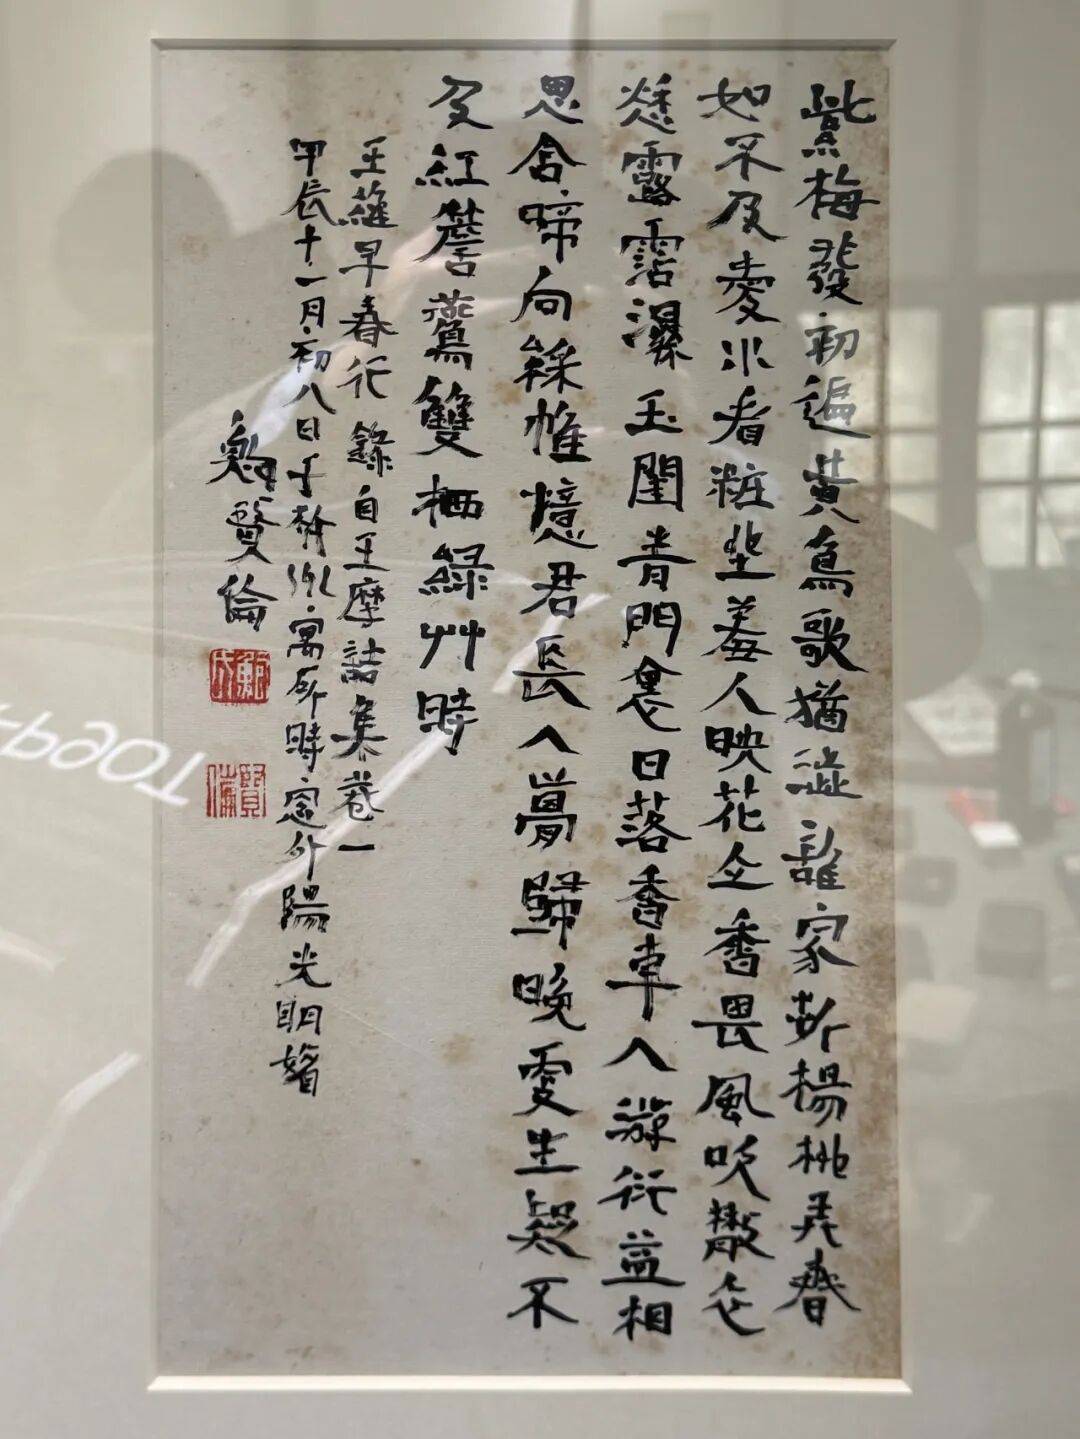 紫梅發初遍黃鳥歌猶澁誰家折楊桃弄春
如不及愛水看粧坐羞人映花立香畏風吹散衣
愁露霑濕玉閨青門裏日落香車入游衍益相
思含啼向綵帷憶君長入夢歸晚更生疑不
及紅簷鷰雙栖綠艸時
王維早春行 錄自王摩詰集卷一
甲辰十一月初八日于州寓所時窗外陽光明媚
鮑賢倫
鮑氏
賢倫